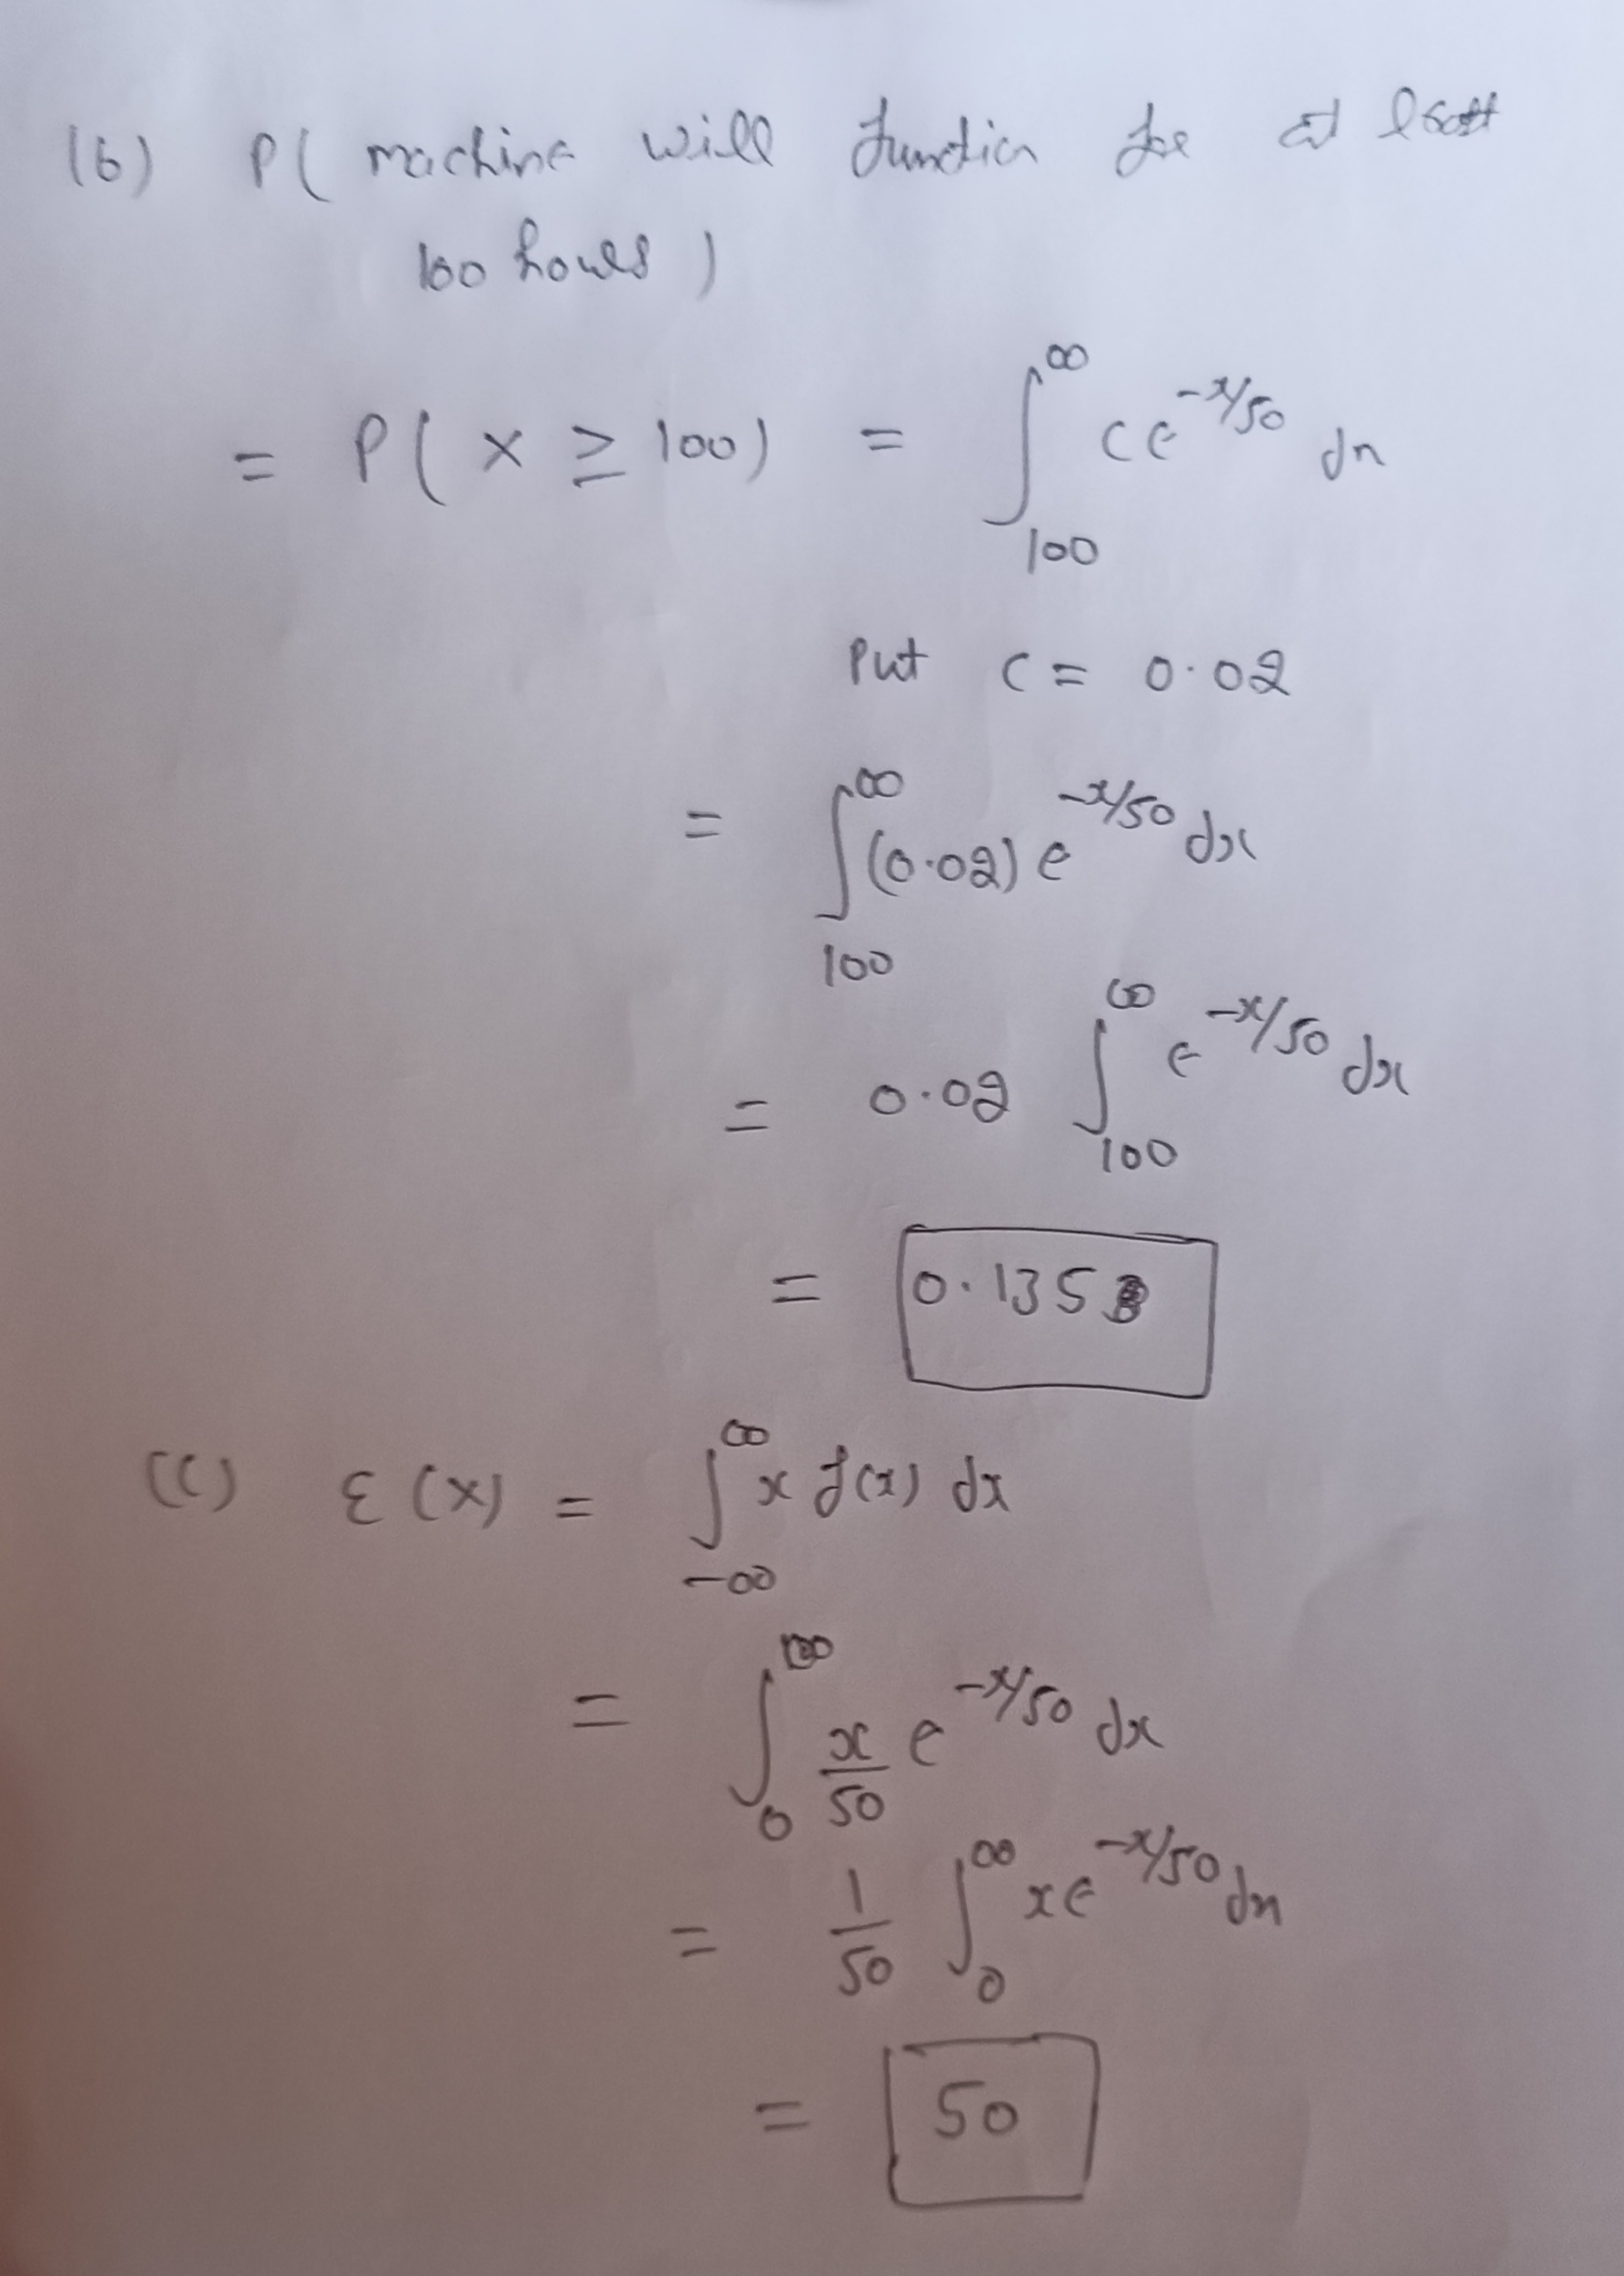 (b) P( machine will function for at least
100 hours )
= P( X ≥ 100) = ∫₁₀₀^∞ c e^(-x/50) dx
Put c = 0.02
= ∫₁₀₀^∞ (0.02) e^(-x/50) dx
= 0.02 ∫₁₀₀^∞ e^(-x/50) dx
= 0.135
(c) E(X) = ∫₋∞^∞ x f(x) dx
= ∫₀^∞ x/50 e^(-x/50) dx
= 1/50 ∫₀^∞ x e^(-x/50) dx
= 50